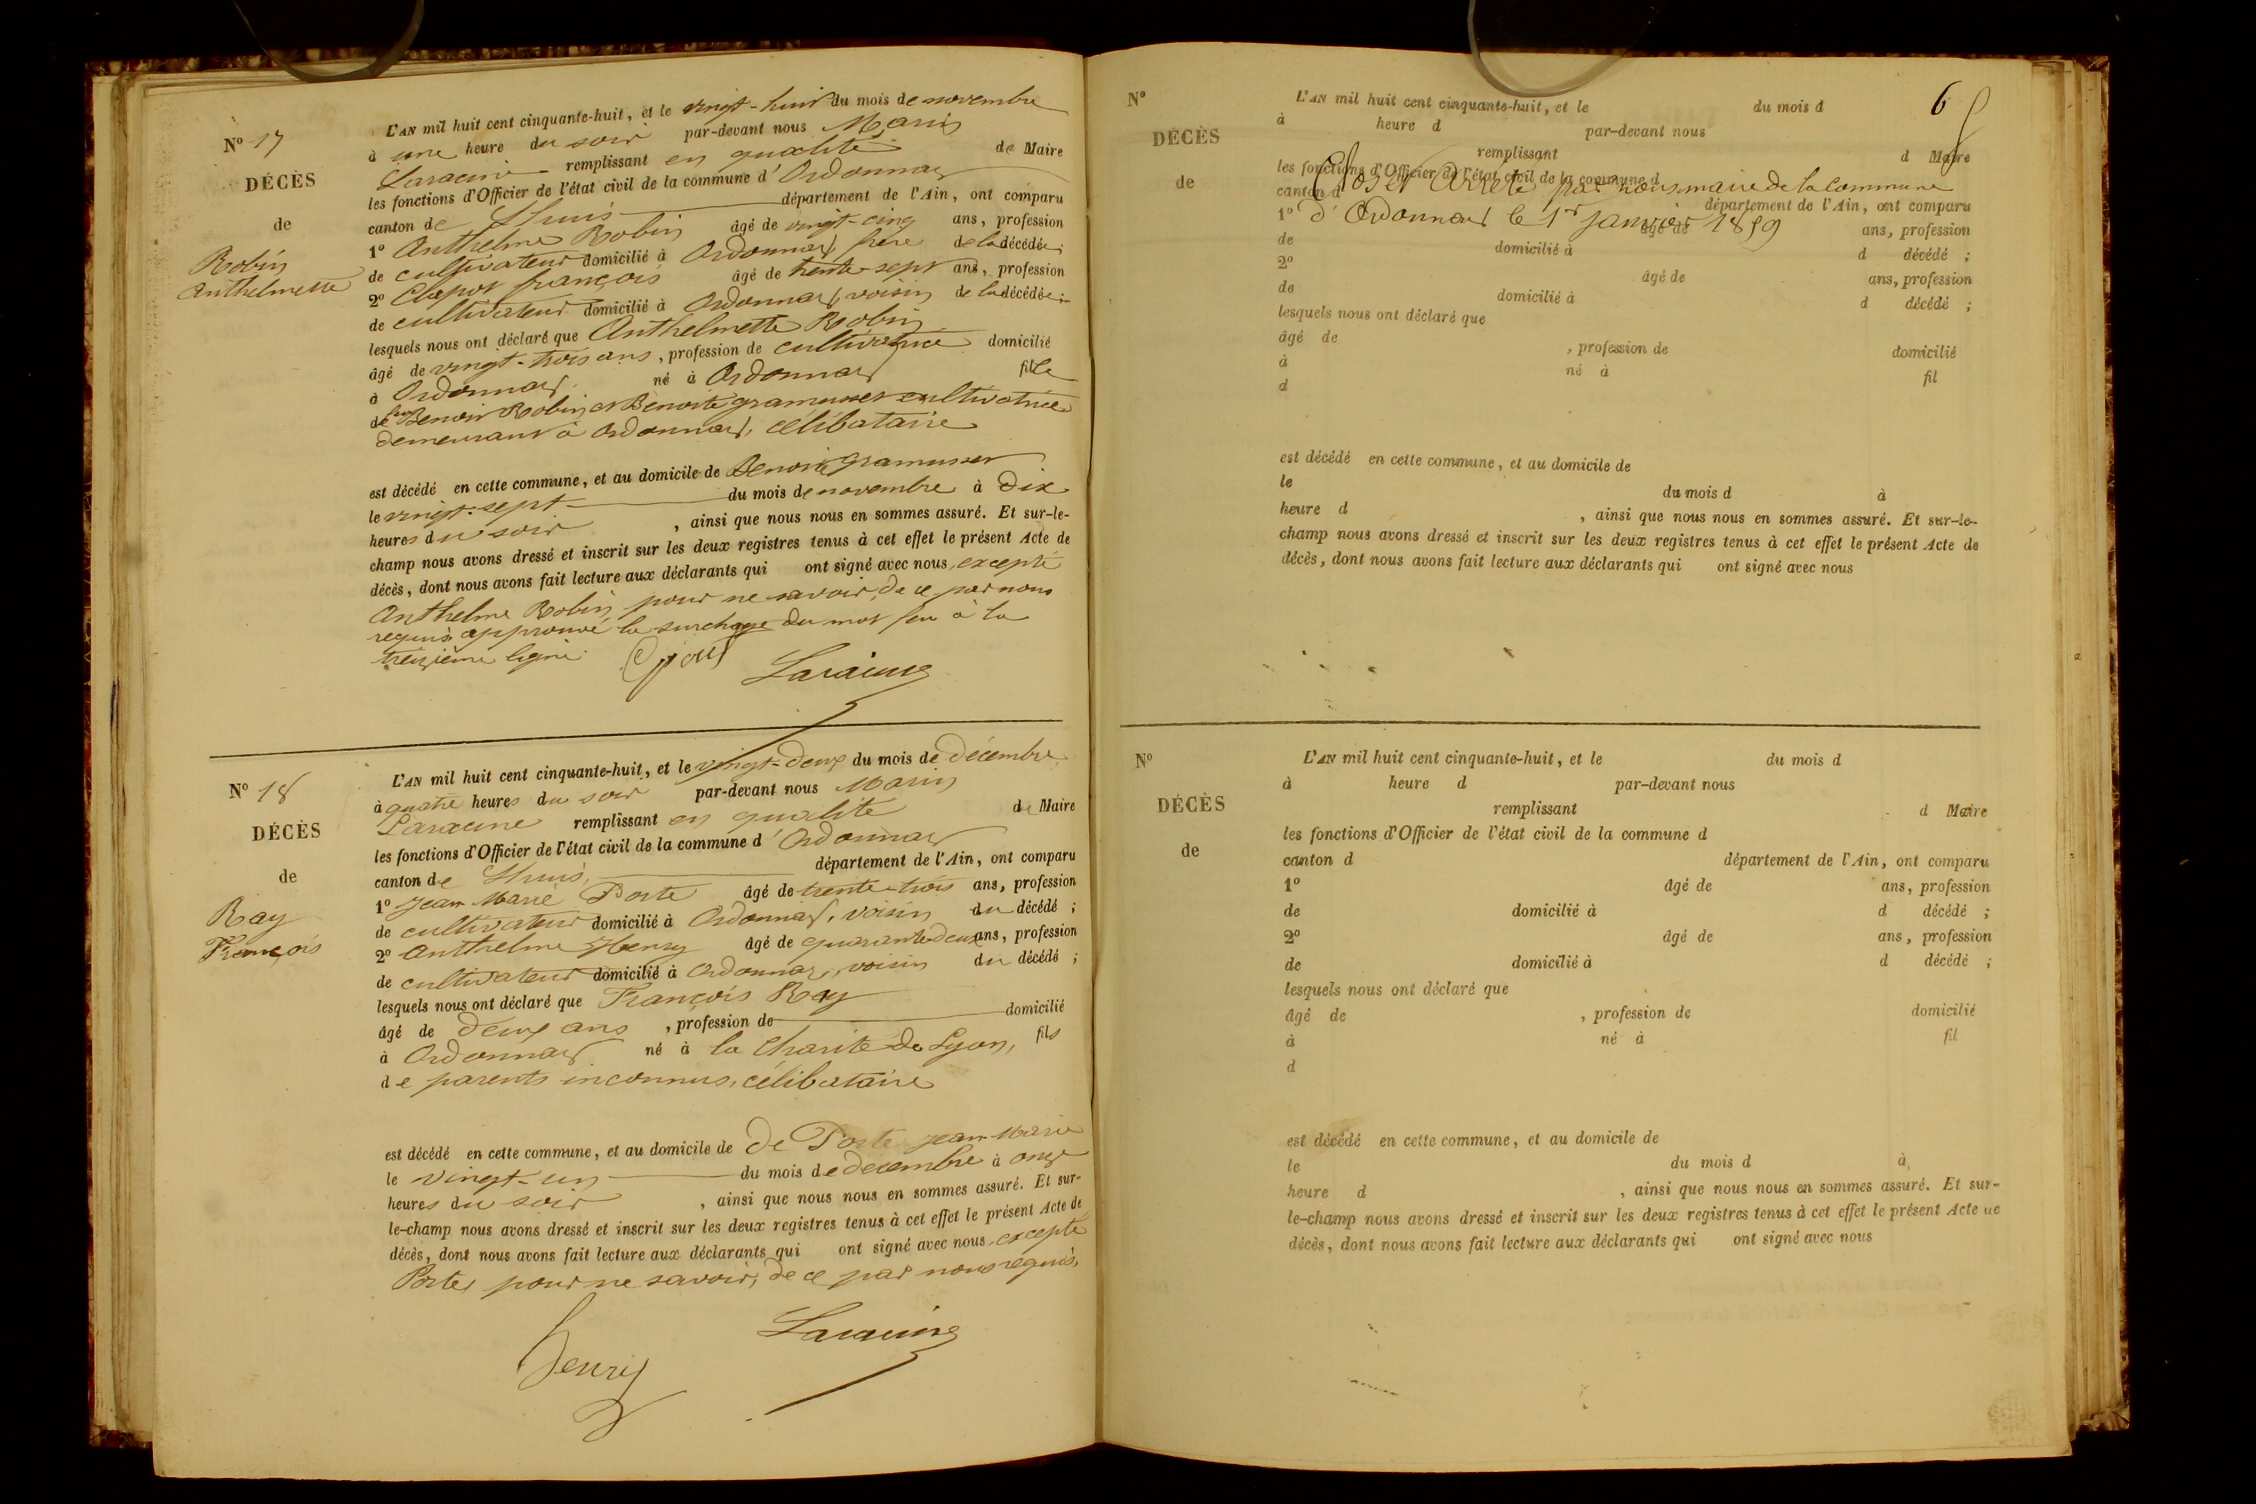 N° 17
DÉCÈS
de
Robin
Anthelmette
L'AN mil huit cent cinquante-huit, et le vingt-huit du mois de novembre
à une heure du soir par-devant nous Marin
Laracine remplissant en qualité de Maire
les fonctions d'Officier de l'état civil de la commune d'Ordonnas
canton de Lhuis département de l'Ain, ont comparu
1° Anthelme Robin âgé de vingt-cinq ans, profession
de cultivateur domicilié à Ordonnas, frère de la décédée;
2° Clapot françois âgé de trente-sept ans, profession
de cultivateur domicilié à Ordonnas, voisin de la décédée;
lesquels nous ont déclaré que Anthelmette Robin
âgé de vingt-trois ans, profession de cultivatrice domicilié
à Ordonnas né à Ordonnas fille
de feu Benoit Robin et Benoite gramusset cultivatrice
demeurant à Ordonnas, célibataire
est décédé en cette commune, et au domicile de Benoite gramusset
le vingt-sept du mois de novembre à Dix
heures du soir, ainsi que nous nous en sommes assuré. Et sur-le-
champ nous avons dressé et inscrit sur les deux registres tenus à cet effet le présent Acte de
décès, dont nous avons fait lecture aux déclarants qui ont signé avec nous, excepté
Anthelme Robin pour ne savoir, de ce par nous
requis approuvé la surcharge du mot feu à la
treizième ligne.
Laracine
N° 18
DÉCÈS
de
Ray
François
L'AN mil huit cent cinquante-huit, et le vingt-deux du mois de Décembre
à quatre heures du soir par-devant nous Marin
Laracine remplissant en qualité de Maire
les fonctions d'Officier de l'état civil de la commune d'Ordonnas
canton de Lhuis, département de l'Ain, ont comparu
1° Jean Marie Porte âgé de trente-trois ans, profession
de cultivateur domicilié à Ordonnas, voisin du décédé;
2° Anthelme Henry âgé de quarante deux ans, profession
de cultivateur domicilié à Ordonnas, voisin du décédé;
lesquels nous ont déclaré que François Ray
âgé de deux ans, profession de domicilié
à Ordonnas né à la Charité de Lyon, fils
de parents inconnus, célibataire
est décédé en cette commune, et au domicile de De Porte Jean-Marie
le vingt-un du mois de decembre à onze
heures du soir, ainsi que nous nous en sommes assuré. Et sur-
le-champ nous avons dressé et inscrit sur les deux registres tenus à cet effet le présent Acte de
décès, dont nous avons fait lecture aux déclarants qui ont signé avec nous excepté
Porte, pour ne savoir, de ce par nous requis.
Laracine
henry
6
N°
DÉCÈS
de
L'AN mil huit cent cinquante-huit, et le du mois d
à heure d par-devant nous
remplissant d Maire
les fonctions d'Officier de l'état civil de la commune d
Clos et arrêté par nous maire de la Commune
canton d département de l'Ain, ont comparu
d'Ordonnas le 1er janvier 1859
1° âgé de ans, profession
de domicilié à d décédé ;
2° âgé de ans, profession
de domicilié à d décédé ;
lesquels nous ont déclaré que
âgé de , profession de domicilié
à né à fil
d
est décédé en cette commune, et au domicile de
le du mois d à
heure d , ainsi que nous nous en sommes assuré. Et sur-le-
champ nous avons dressé et inscrit sur les deux registres tenus à cet effet le présent Acte de
décès, dont nous avons fait lecture aux déclarants qui ont signé avec nous
N°
DÉCÈS
de
L'AN mil huit cent cinquante-huit, et le du mois d
à heure d par-devant nous
remplissant d Maire
les fonctions d'Officier de l'état civil de la commune d
canton d département de l'Ain, ont comparu
1° âgé de ans, profession
de domicilié à d décédé ;
2° âgé de ans, profession
de domicilié à d décédé ;
lesquels nous ont déclaré que
âgé de , profession de domicilié
à né à fil
d
est décédé en cette commune, et au domicile de
le du mois d à
heure d , ainsi que nous nous en sommes assuré. Et sur-
le-champ nous avons dressé et inscrit sur les deux registres tenus à cet effet le présent Acte de
décès, dont nous avons fait lecture aux déclarants qui ont signé avec nous